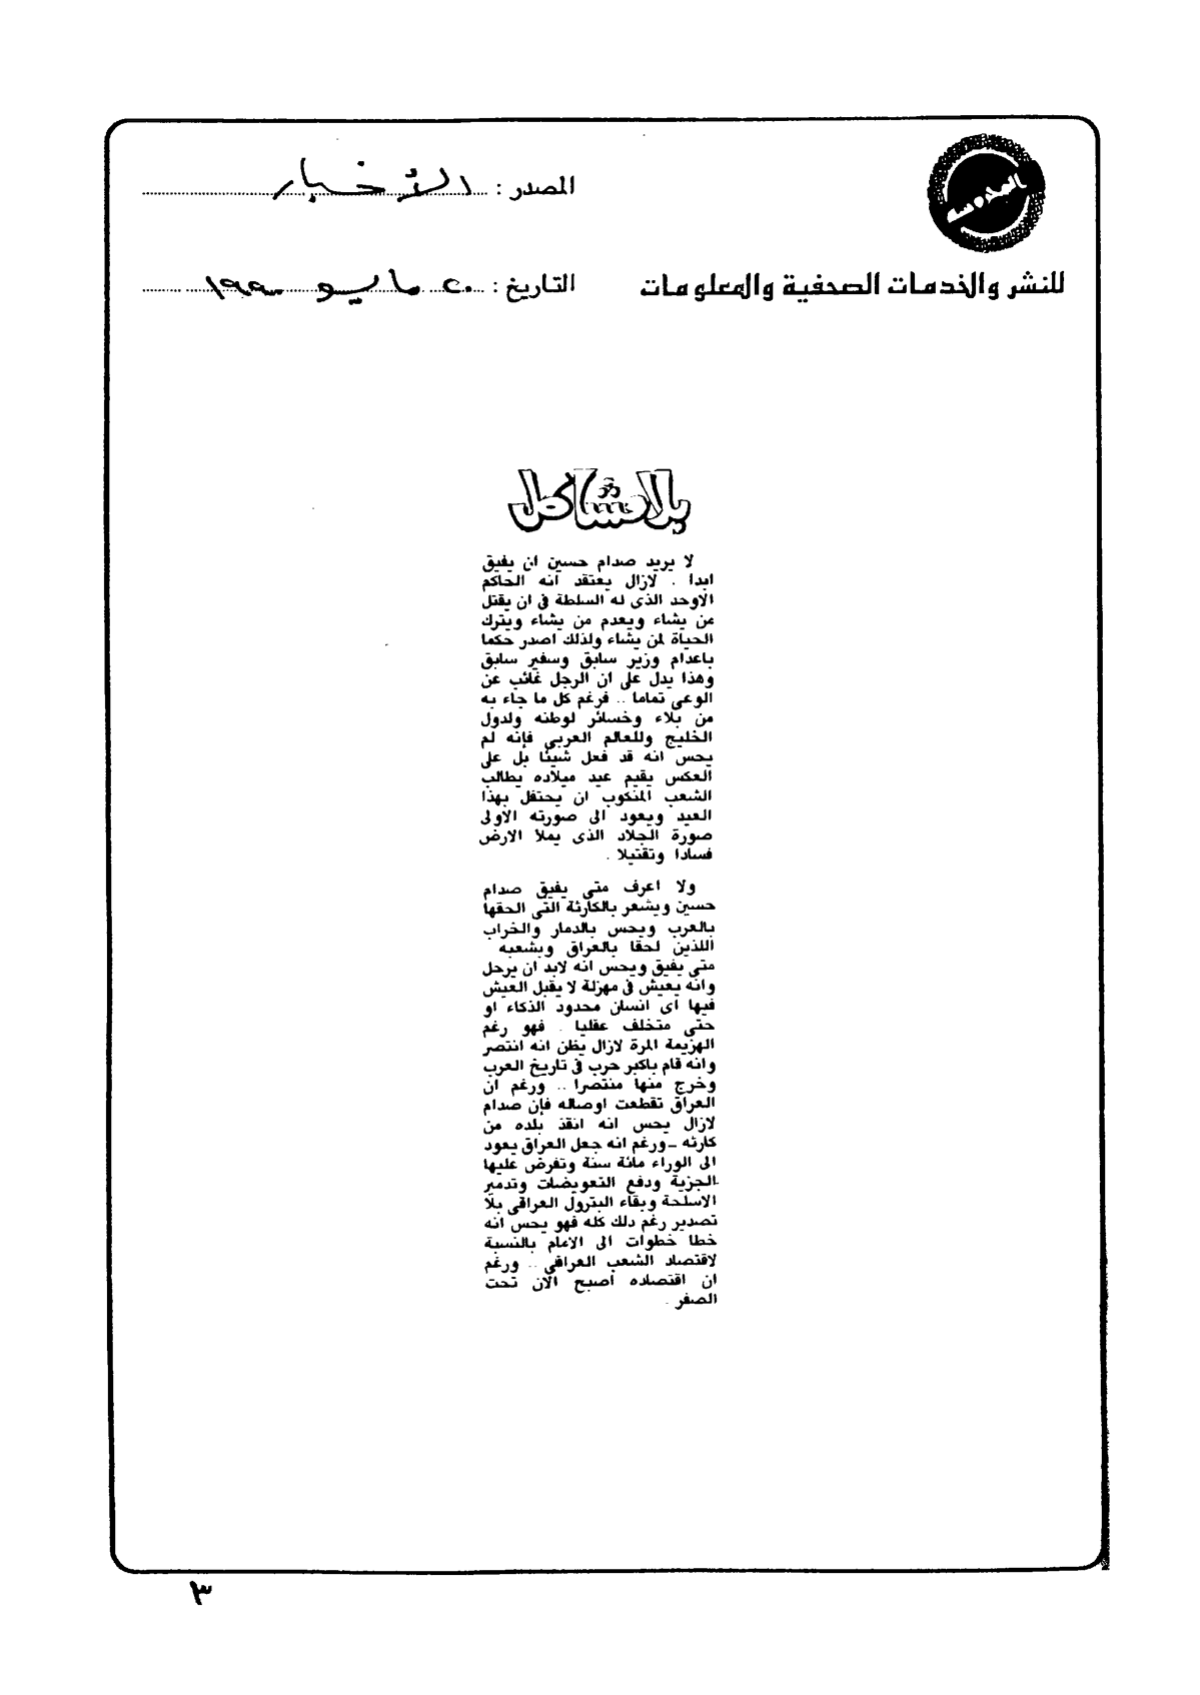 المصدر : الأخبار
التاريخ : ٢٠ مايو ١٩٩٠
للنشر والخدمات الصحفية والمعلومات
بلا مشاكل
لا يريد صدام حسين ان يفيق
ابدا . لازال يعتقد انه الحاكم
الاوحد الذى له السلطة فى ان يقتل
من يشاء ويعدم من يشاء ويترك
الحياة لمن يشاء ولذلك اصدر حكما
باعدام وزير سابق وسفير سابق
وهذا يدل على ان الرجل غائب عن
الوعى تماما .. فرغم كل ما جاء به
من بلاء وخسائر لوطنه ولدول
الخليج وللعالم العربى فإنه لم
يحس انه قد فعل شيئا بل على
العكس يقيم عيد ميلاده يطالب
الشعب المنكوب ان يحتفل بهذا
العيد ويعود الى صورته الاولى
صورة الجلاد الذى يملا الارض
فسادا وتقتيلا .
ولا اعرف متى يفيق صدام
حسين ويشعر بالكارثة التى الحقها
بالعرب ويحس بالدمار والخراب
اللذين لحقا بالعراق وبشعبه
متى يفيق ويحس انه لابد ان يرحل
وانه يعيش فى مهزلة لا يقبل العيش
فيها اى انسان محدود الذكاء او
حتى متخلف عقليا . فهو رغم
الهزيمة المرة لازال يظن انه انتصر
وانه قام باكبر حرب فى تاريخ العرب
وخرج منها منتصرا .. ورغم ان
العراق تقطعت اوصاله فإن صدام
لازال يحس انه انقذ بلده من
كارثه - ورغم انه جعل العراق يعود
الى الوراء مائة سنة وتفرض عليها
الجزية ودفع التعويضات وتدمير
الاسلحة وبقاء البترول العراقى بلا
تصدير رغم ذلك كله فهو يحس انه
خطا خطوات الى الامام بالنسبة
لاقتصاد الشعب العراقى .. ورغم
ان اقتصاده أصبح الآن تحت
الصفر .
٣